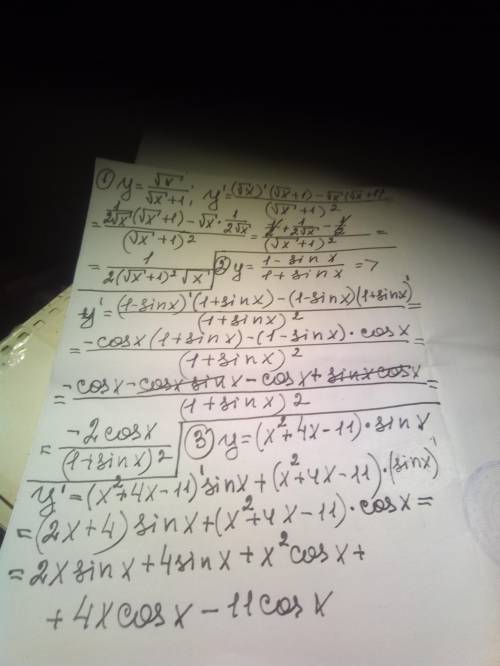 ① y = √x / (√x + 1); y' = ((√x)'(√x+1) − √x(√x+1)') / (√x+1)²
= (1/(2√x) (√x+1) − √x · 1/(2√x)) / (√x+1)² = (1/2 + 1/(2√x) − 1/2) / (√x+1)² =
= 1 / (2(√x+1)² √x) ② y = (1 − sin x) / (1 + sin x) =>
y' = ((1−sinx)'(1+sinx) − (1−sinx)(1+sinx)') / (1+sinx)² =
= (−cosx(1+sinx) − (1−sinx)·cosx) / (1+sinx)² =
= (−cosx − cosx sinx − cosx + sinx cosx) / (1+sinx)² =
= −2cosx / (1+sinx)² ③ y = (x²+4x−11)·sinx
y' = (x²+4x−11)' sinx + (x²+4x−11)·(sinx)'
= (2x+4) sinx + (x²+4x−11)·cosx =
= 2x sinx + 4 sinx + x² cosx +
+ 4x cosx − 11 cosx